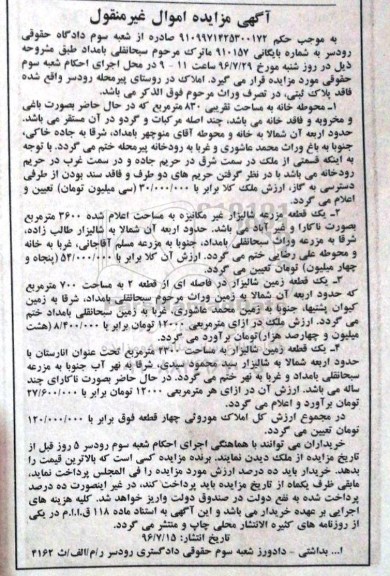 آگهی مزایده اموال غیرمنقول
به موجب حکم ۹۱۰۹۹۷۱۴۲۵۳۰۰۱۷۲ صادره از شعبه سوم دادگاه حقوقی
رودسر به شماره بایگانی ۹۱۰۱۵۷ ماترک مرحوم سبحانقلی بامداد طبق مشروحه
ذیل در روز شنبه مورخ ۹۶/۷/۲۹ ساعت ۱۱ - ۹ در محل اجرای احکام شعبه سوم
حقوقی مورد مزایده قرار می گیرد. املاک در روستای پیرمحله رودسر واقع شده
فاقد پلاک ثبتی، در تصرف وراث مرحوم فوق الذکر می باشد.
۱ـ محوطه خانه به مساحت تقریبی ۸۳۰ مترمربع که در حال حاضر بصورت باغی
و مخروبه و فاقد خانه می باشد، چند اصله مرکبات و گردو در آن مستقر می باشد.
حدود اربعه آن شمالا به خانه و محوطه آقای منوچهر بامداد، شرقا به جاده خاکی،
جنوبا به باغ وراث محمد عاشوری و غربا به رودخانه پیرمحله ختم می گردد. با توجه
به اینکه قسمتی از ملک در سمت شرق در حریم جاده و در سمت غرب در حریم
رودخانه می باشد با در نظر گرفتن حریم های دو طرف و فاقد سند بودن از طرفی
دسترسی به گاز، ارزش ملک کلا برابر با ۳۰/۰۰۰/۰۰۰ (سی میلیون تومان) تعیین و
اعلام می گردد.
۲ـ یک قطعه مزرعه شالیزار غیر مکانیزه به مساحت اعلام شده ۳۶۰۰ مترمربع
بصورت ناکارا و غیر آباد می باشد. حدود اربعه آن شمالا به شالیزار طالب زاده،
شرقا به مزرعه وراث سبحانقلی بامداد، جنوبا به مزرعه مسلم آقاجانی، غربا به خانه
و محوطه علی رضایی ختم می گردد. ارزش آن کلا برابر با ۵۴/۰۰۰/۰۰۰ (پنجاه و
چهار میلیون) تومان تعیین می گردد.
۳ـ یک قطعه زمین شالیزار در فاصله ای از قطعه ۲ به مساحت ۷۰۰ مترمربع
که حدود اربعه آن شمالا به زمین وراث مرحوم سبحانقلی بامداد، شرقا به زمین
کیوان پشتیها، جنوبا به زمین محمد عاشوری، غربا به زمین سبحانقلی بامداد ختم
می گردد. ارزش ملک در ازای مترمربعی ۱۲۰۰۰ تومان برابر با ۸/۴۰۰/۰۰۰ (هشت
میلیون و چهارصد هزار) تومان برآورد می گردد.
۴ـ یک قطعه زمین شالیزار به مساحت ۲۳۰۰ مترمربع تحت عنوان انارستان با
حدود اربعه شمالا به شالیزار سید محمود سیدی، شرقا به نهر آب جنوبا به مزرعه
سبحانقلی بامداد و غربا به نهر ختم می گردد. در حال حاضر بصورت ناکارای چند
ساله می باشد. ارزش آن در ازای هر مترمربعی ۱۲۰۰۰ تومان برابر با ۲۷/۶۰۰/۰۰۰
تومان برآورد و اعلام می گردد.
در مجموع ارزش کل املاک موروثی چهار قطعه فوق برابر با ۱۲۰/۰۰۰/۰۰۰
تومان تعیین می گردد.
خریداران می توانند با هماهنگی اجرای احکام شعبه سوم رودسر ۵ روز قبل از
تاریخ مزایده از ملک دیدن نمایند. برنده مزایده کسی است که بالاترین قیمت را
بدهد. خریدار باید ده درصد ارزش مورد مزایده را فی المجلس پرداخت نماید،
مابقی ظرف یکماه از تاریخ مزایده باید پرداخت کند، در غیر اینصورت ده درصد
پرداخت شده به نفع دولت در صندوق دولت واریز خواهد شد. کلیه هزینه های
اجرایی بر عهده خریدار می باشد و این آگهی به استناد ماده ۱۱۸ ق.ا.ا.م در یکی
از روزنامه های کثیره الانتشار محلی چاپ و منتشر می گردد.
تاریخ انتشار: ۹۶/۷/۱۵
ا... بداشتی - دادورز شعبه سوم حقوقی دادگستری رودسر ر/م/الف/ث ۴۱۶۲